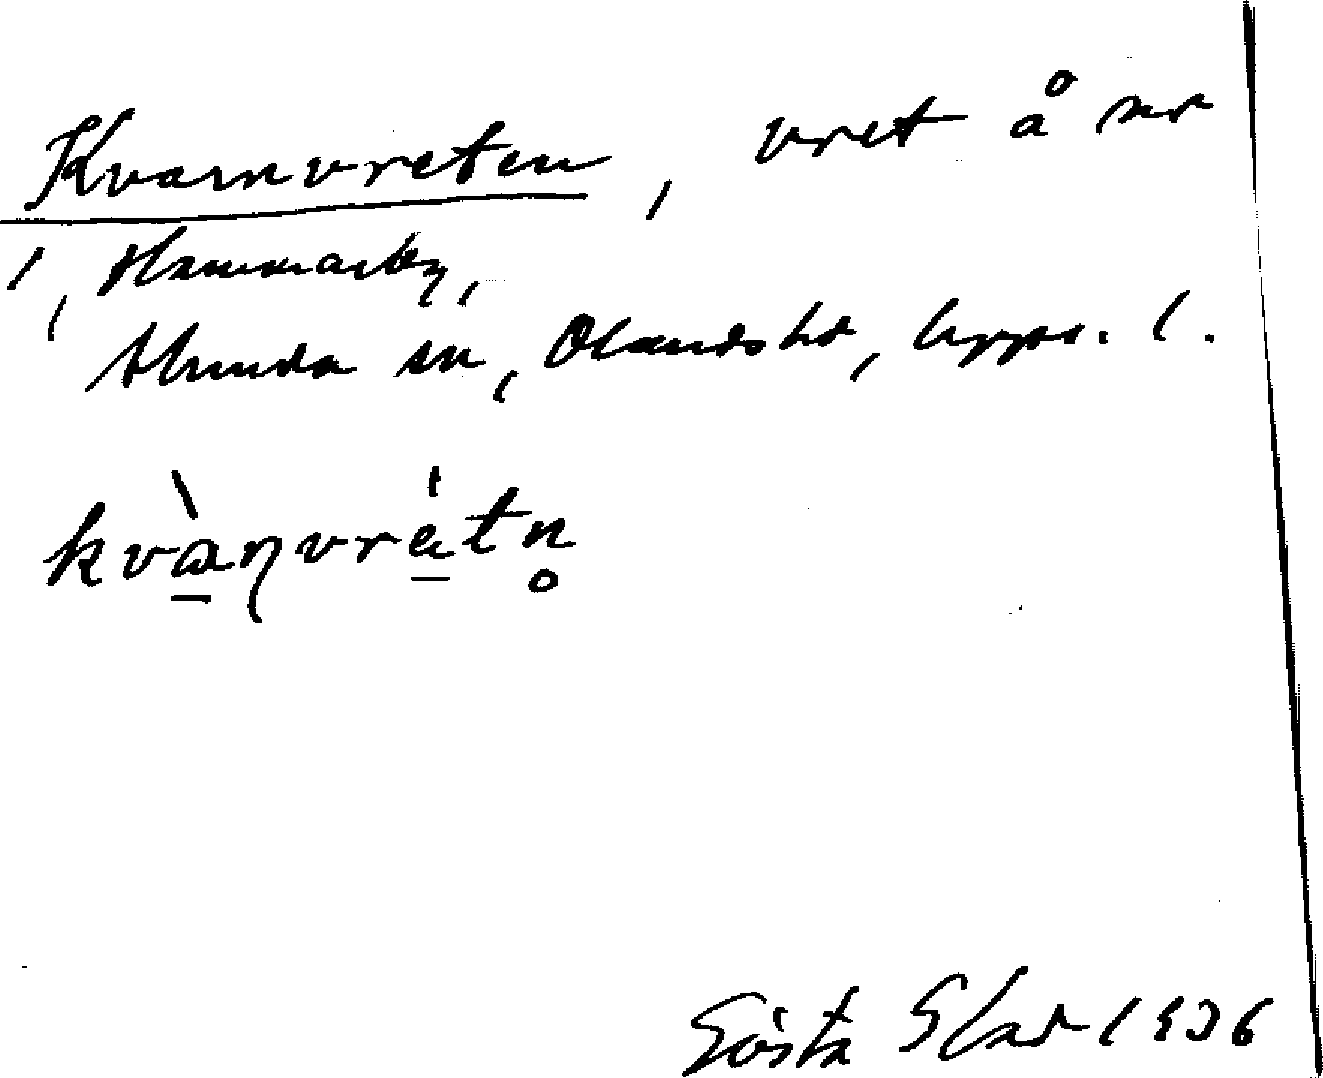 Kvarnvreten, vret å nr
1, Hammarby,
Almunda sn, Olandshd, Upps. l.
kvàṇvrátn̥
Gösta Blad 1936